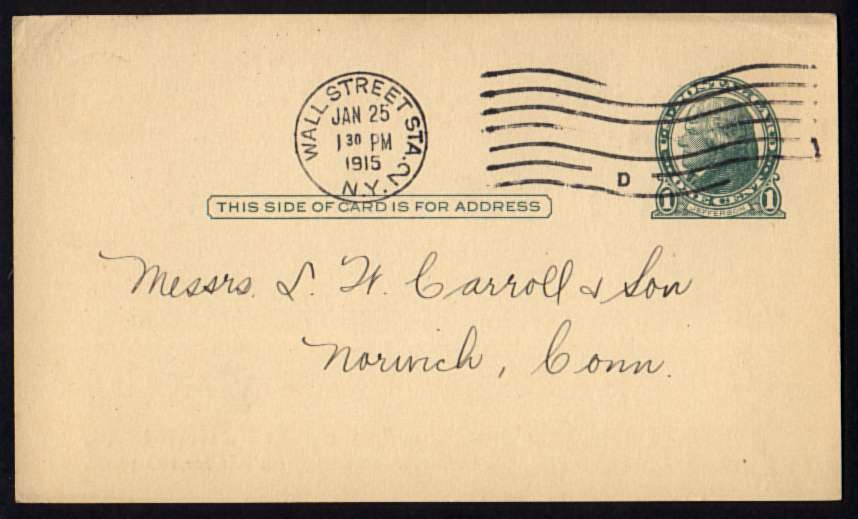 WALL STREET STA. 2
JAN 25
1 30 PM
1915
N.Y.
D
U.S. POSTAL CARD
ONE CENT
1 JEFFERSON 1
THIS SIDE OF CARD IS FOR ADDRESS
Messrs. L. W. Carroll & Son
Norwich, Conn.